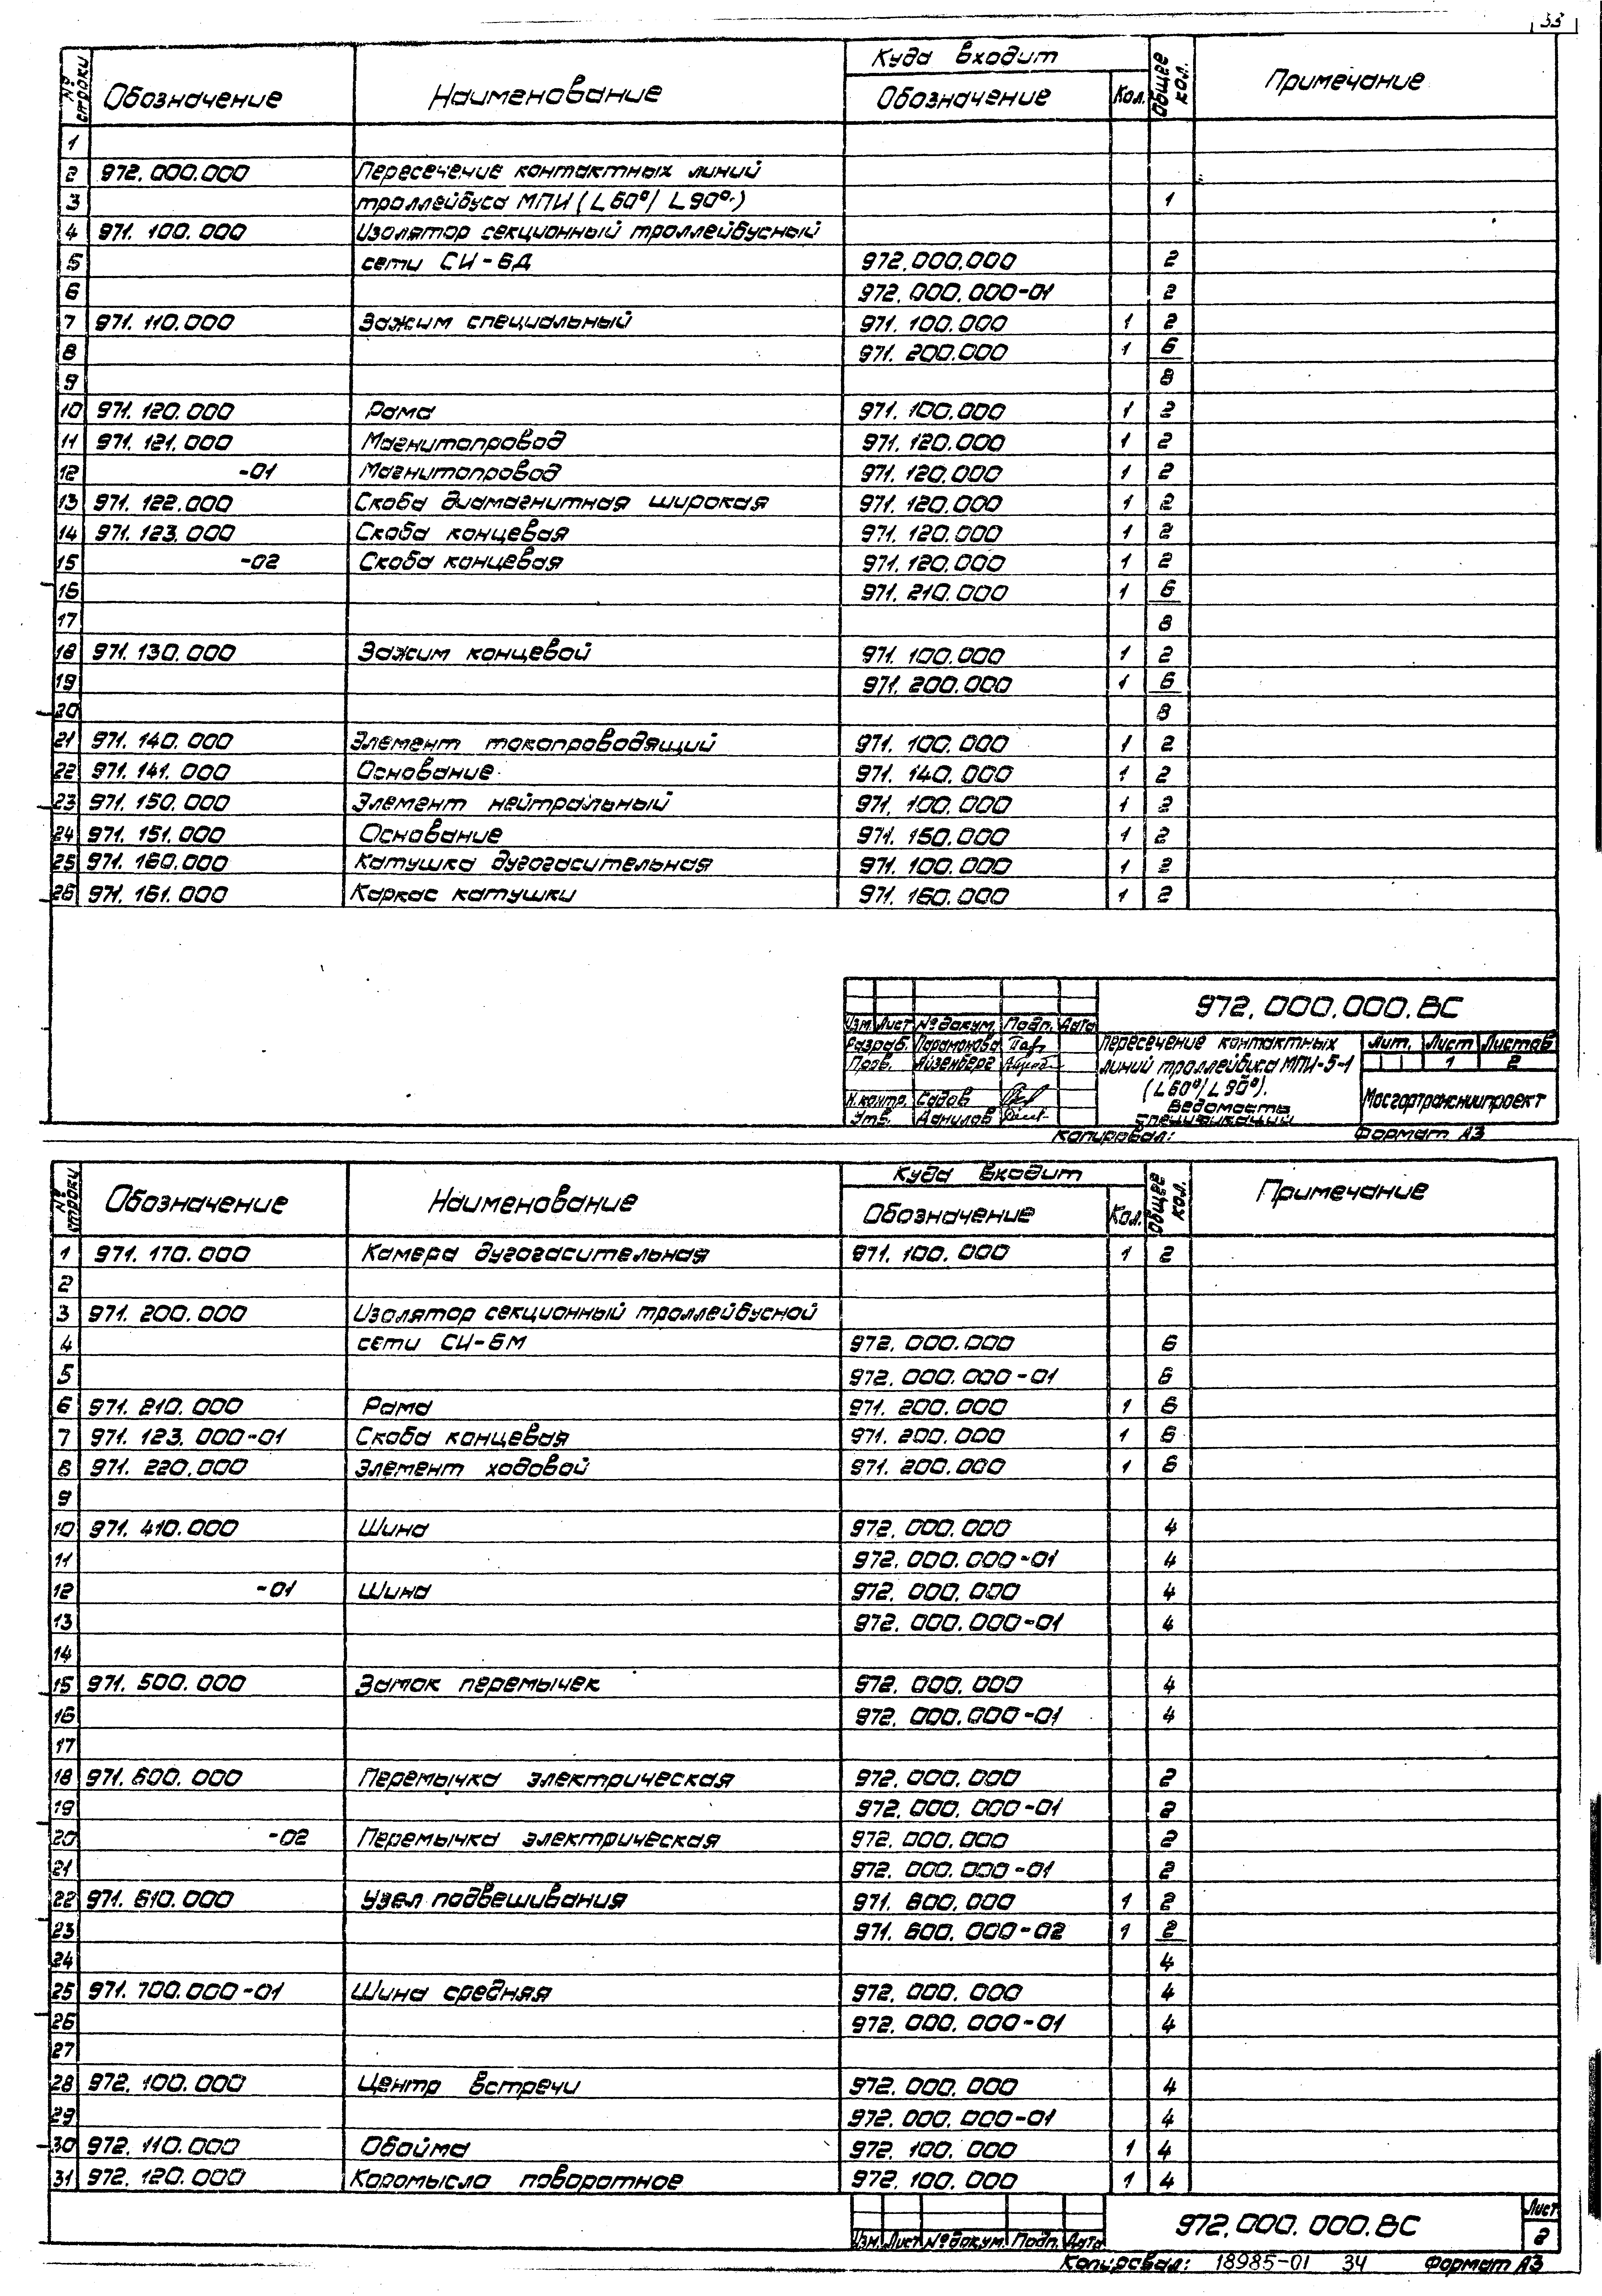 33
№ строки Обозначение Наименование Куда входит Общее кол. Примечание
Обозначение Кол.
1
2 972.000.000 Пересечение контактных линий
3 троллейбуса МПИ (L 60°/ L 90°) 1
4 971.100.000 Изолятор секционный троллейбусный
5 сети СИ-6Д 972.000.000 2
6 972.000.000-01 2
7 971.110.000 Зажим специальный 971.100.000 1 2
8 971.200.000 1 6
9 8
10 971.120.000 Рама 971.100.000 1 2
11 971.121.000 Магнитопровод 971.120.000 1 2
12 -01 Магнитопровод 971.120.000 1 2
13 971.122.000 Скоба диамагнитная широкая 971.120.000 1 2
14 971.123.000 Скоба концевая 971.120.000 1 2
15 -02 Скоба концевая 971.120.000 1 2
16 971.210.000 1 6
17 8
18 971.130.000 Зажим концевой 971.100.000 1 2
19 971.200.000 1 6
20 8
21 971.140.000 Элемент токопроводящий 971.100.000 1 2
22 971.141.000 Основание 971.140.000 1 2
23 971.150.000 Элемент нейтральный 971.100.000 1 2
24 971.151.000 Основание 971.150.000 1 2
25 971.160.000 Катушка дугогасительная 971.100.000 1 2
26 971.161.000 Каркас катушки 971.160.000 1 2
972.000.000.ВС
Изм. Лист № докум. Подп. Дата
Разраб. Парамонова
Пров. Айзенберг
Н.контр. Садов
Утв. Данилов
Пересечение контактных
линий троллейбуса МПИ-5-1
(L 60°/ L 90°).
Ведомость
спецификаций
Лит. Лист Листов
1 2
Мосгортрансниипроект
Копировал: Формат А3
№ строки Обозначение Наименование Куда входит Общее кол. Примечание
Обозначение Кол.
1 971.170.000 Камера дугогасительная 971.100.000 1 2
2
3 971.200.000 Изолятор секционный троллейбусной
4 сети СИ-6М 972.000.000 6
5 972.000.000-01 6
6 971.210.000 Рама 971.200.000 1 6
7 971.123.000-01 Скоба концевая 971.200.000 1 6
8 971.220.000 Элемент ходовой 971.200.000 1 6
9
10 971.410.000 Шина 972.000.000 4
11 972.000.000-01 4
12 -01 Шина 972.000.000 4
13 972.000.000-01 4
14
15 971.500.000 Замок перемычек 972.000.000 4
16 972.000.000-01 4
17
18 971.600.000 Перемычка электрическая 972.000.000 2
19 972.000.000-01 2
20 -02 Перемычка электрическая 972.000.000 2
21 972.000.000-01 2
22 971.610.000 Узел подвешивания 971.600.000 1 2
23 971.600.000-02 1 2
24 4
25 971.700.000-01 Шина средняя 972.000.000 4
26 972.000.000-01 4
27
28 972.100.000 Центр встречи 972.000.000 4
29 972.000.000-01 4
30 972.110.000 Обойма 972.100.000 1 4
31 972.120.000 Коромысло поворотное 972.100.000 1 4
Изм. Лист № докум. Подп. Дата
972.000.000.ВС
Лист
2
Копировал: 18985-01 34 Формат А3